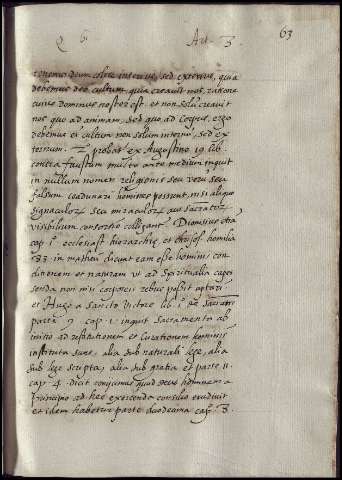 Q 6 Art. 3. 63
tenemur deum colere interius, sed exterius, quia
debemus deo cultum, quia creavit nos, ratione
cuius Dominus noster est. et non solum creavit
nos quo ad animam, sed quo ad corpus, ergo
debemus ei cultum non solum internum, sed ex
ternum. 2. probat ex Augustino 19 lib.
contra faustum multo ante medium inquit
in nullum nomen religionis seu verum seu
falsum coadunari homines possunt, nisi aliquo
signaculorum seu miraculorum aut sacramentorum
visibilium consortio colligantur. Dionisius etiam
cap. 1 ecclesiast. hierarchiae et Chrisost. homilia
83 in matheum docuit eam esse hominis con
ditionem et naturam ut ad spiritualia capes
senda non nisi corporeis rebus possit aptari
et Hugo a Sancto Victore lib. 1 de Sacramentis
parte 9 cap. 1 inquit Sacramenta ab
initio ad restitutionem et curationem hominis
instituta sunt, alia sub naturali lege, alia
sub lege scripta, alia sub gratia et parte 11
cap. 4. dicit quod deus hominem a
principio ad hec exercenda consilio erudivit
et idem habetur parte duodecima cap. 3.